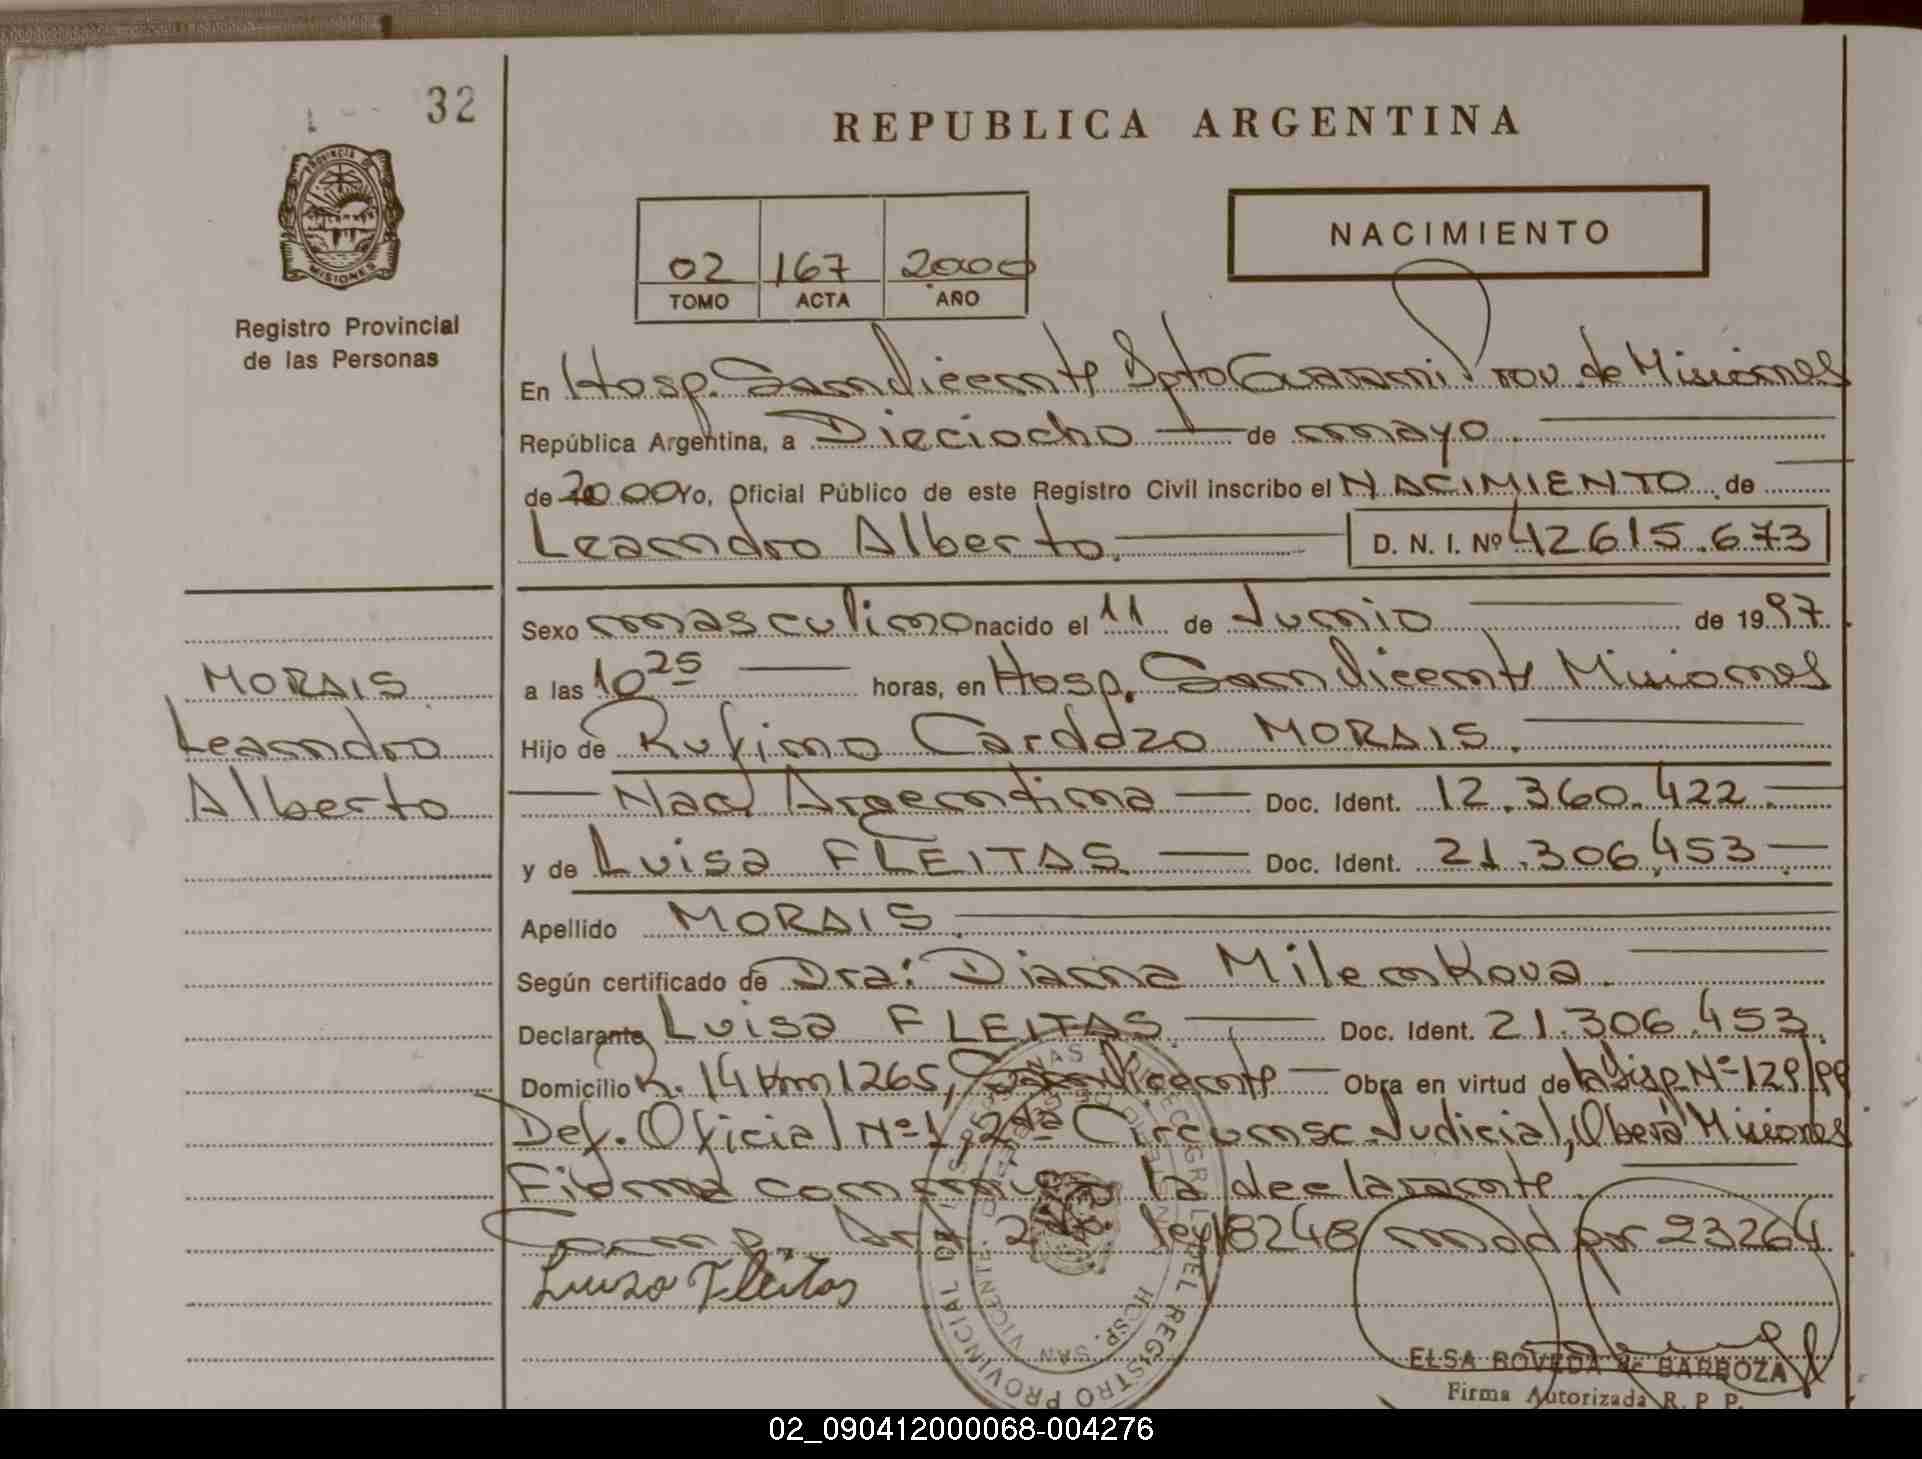 32
REPUBLICA ARGENTINA
PROVINCIA DE
MISIONES
Registro Provincial
de las Personas
02 167 2000
TOMO ACTA AÑO
NACIMIENTO
En Hosp. San Vicente Dpto Guarani Prov. de Misiones
República Argentina, a Dieciocho de mayo
de 2000 Yo, Oficial Público de este Registro Civil inscribo el NACIMIENTO de
Leandro Alberto. D. N. I. Nº 42615.673
Sexo masculino nacido el 11 de Junio de 1997.
a las 10 25 horas, en Hosp. San Vicente Misiones
Hijo de Rufino Cardozo MORAIS.
Nac. Argentina Doc. Ident. 12.360.422.
y de Luisa FLEITAS Doc. Ident. 21.306.453
Apellido MORAIS.
Según certificado de Dra: Diana Milenkova.
Declarante Luisa FLEITAS Doc. Ident. 21.306.453.
Domicilio R. 14 km 1265, San Vicente Obra en virtud de Disp Nº 129/99
Def. Oficial Nº 1, 2da Circunsc. Judicial, Oberá Misiones
Firma conmigo la declarante.
Art 2do. ley 18248 mod por 23264
Luisa Fleitas
MORAIS
Leandro
Alberto
REGISTRO PROVINCIAL DE LAS PERSONAS
HOSP. SAN VICENTE
ELSA BOVEDA de BARBOZA
Firma Autorizada R. P. P.
02_090412000068-004276